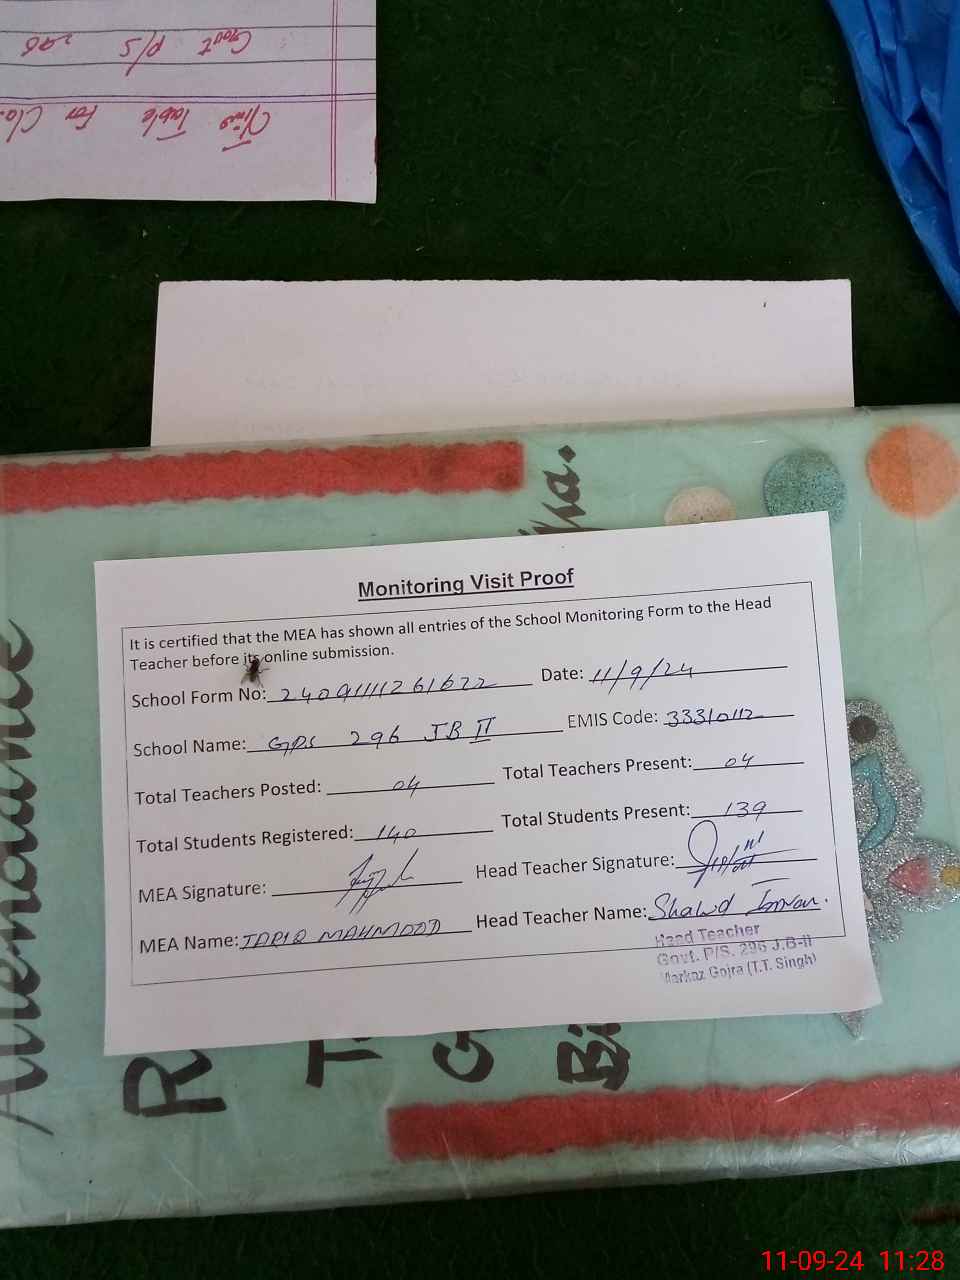 Govt P/S 296
Time Table For Cla.
Monitoring Visit Proof
It is certified that the MEA has shown all entries of the School Monitoring Form to the Head
Teacher before its online submission.
School Form No: 24091111261622 Date: 11/9/24
School Name: GPS 296 JB II EMIS Code: 33310112
Total Teachers Posted: 04 Total Teachers Present: 04
Total Students Registered: 140 Total Students Present: 139
MEA Signature: Head Teacher Signature:
MEA Name: TARIQ MAHMOOD Head Teacher Name: Shahid Imran.
Head Teacher
Govt. P/S. 296 J.B-II
Markaz Gojra (T.T. Singh)
Attendance
R
11-09-24 11:28